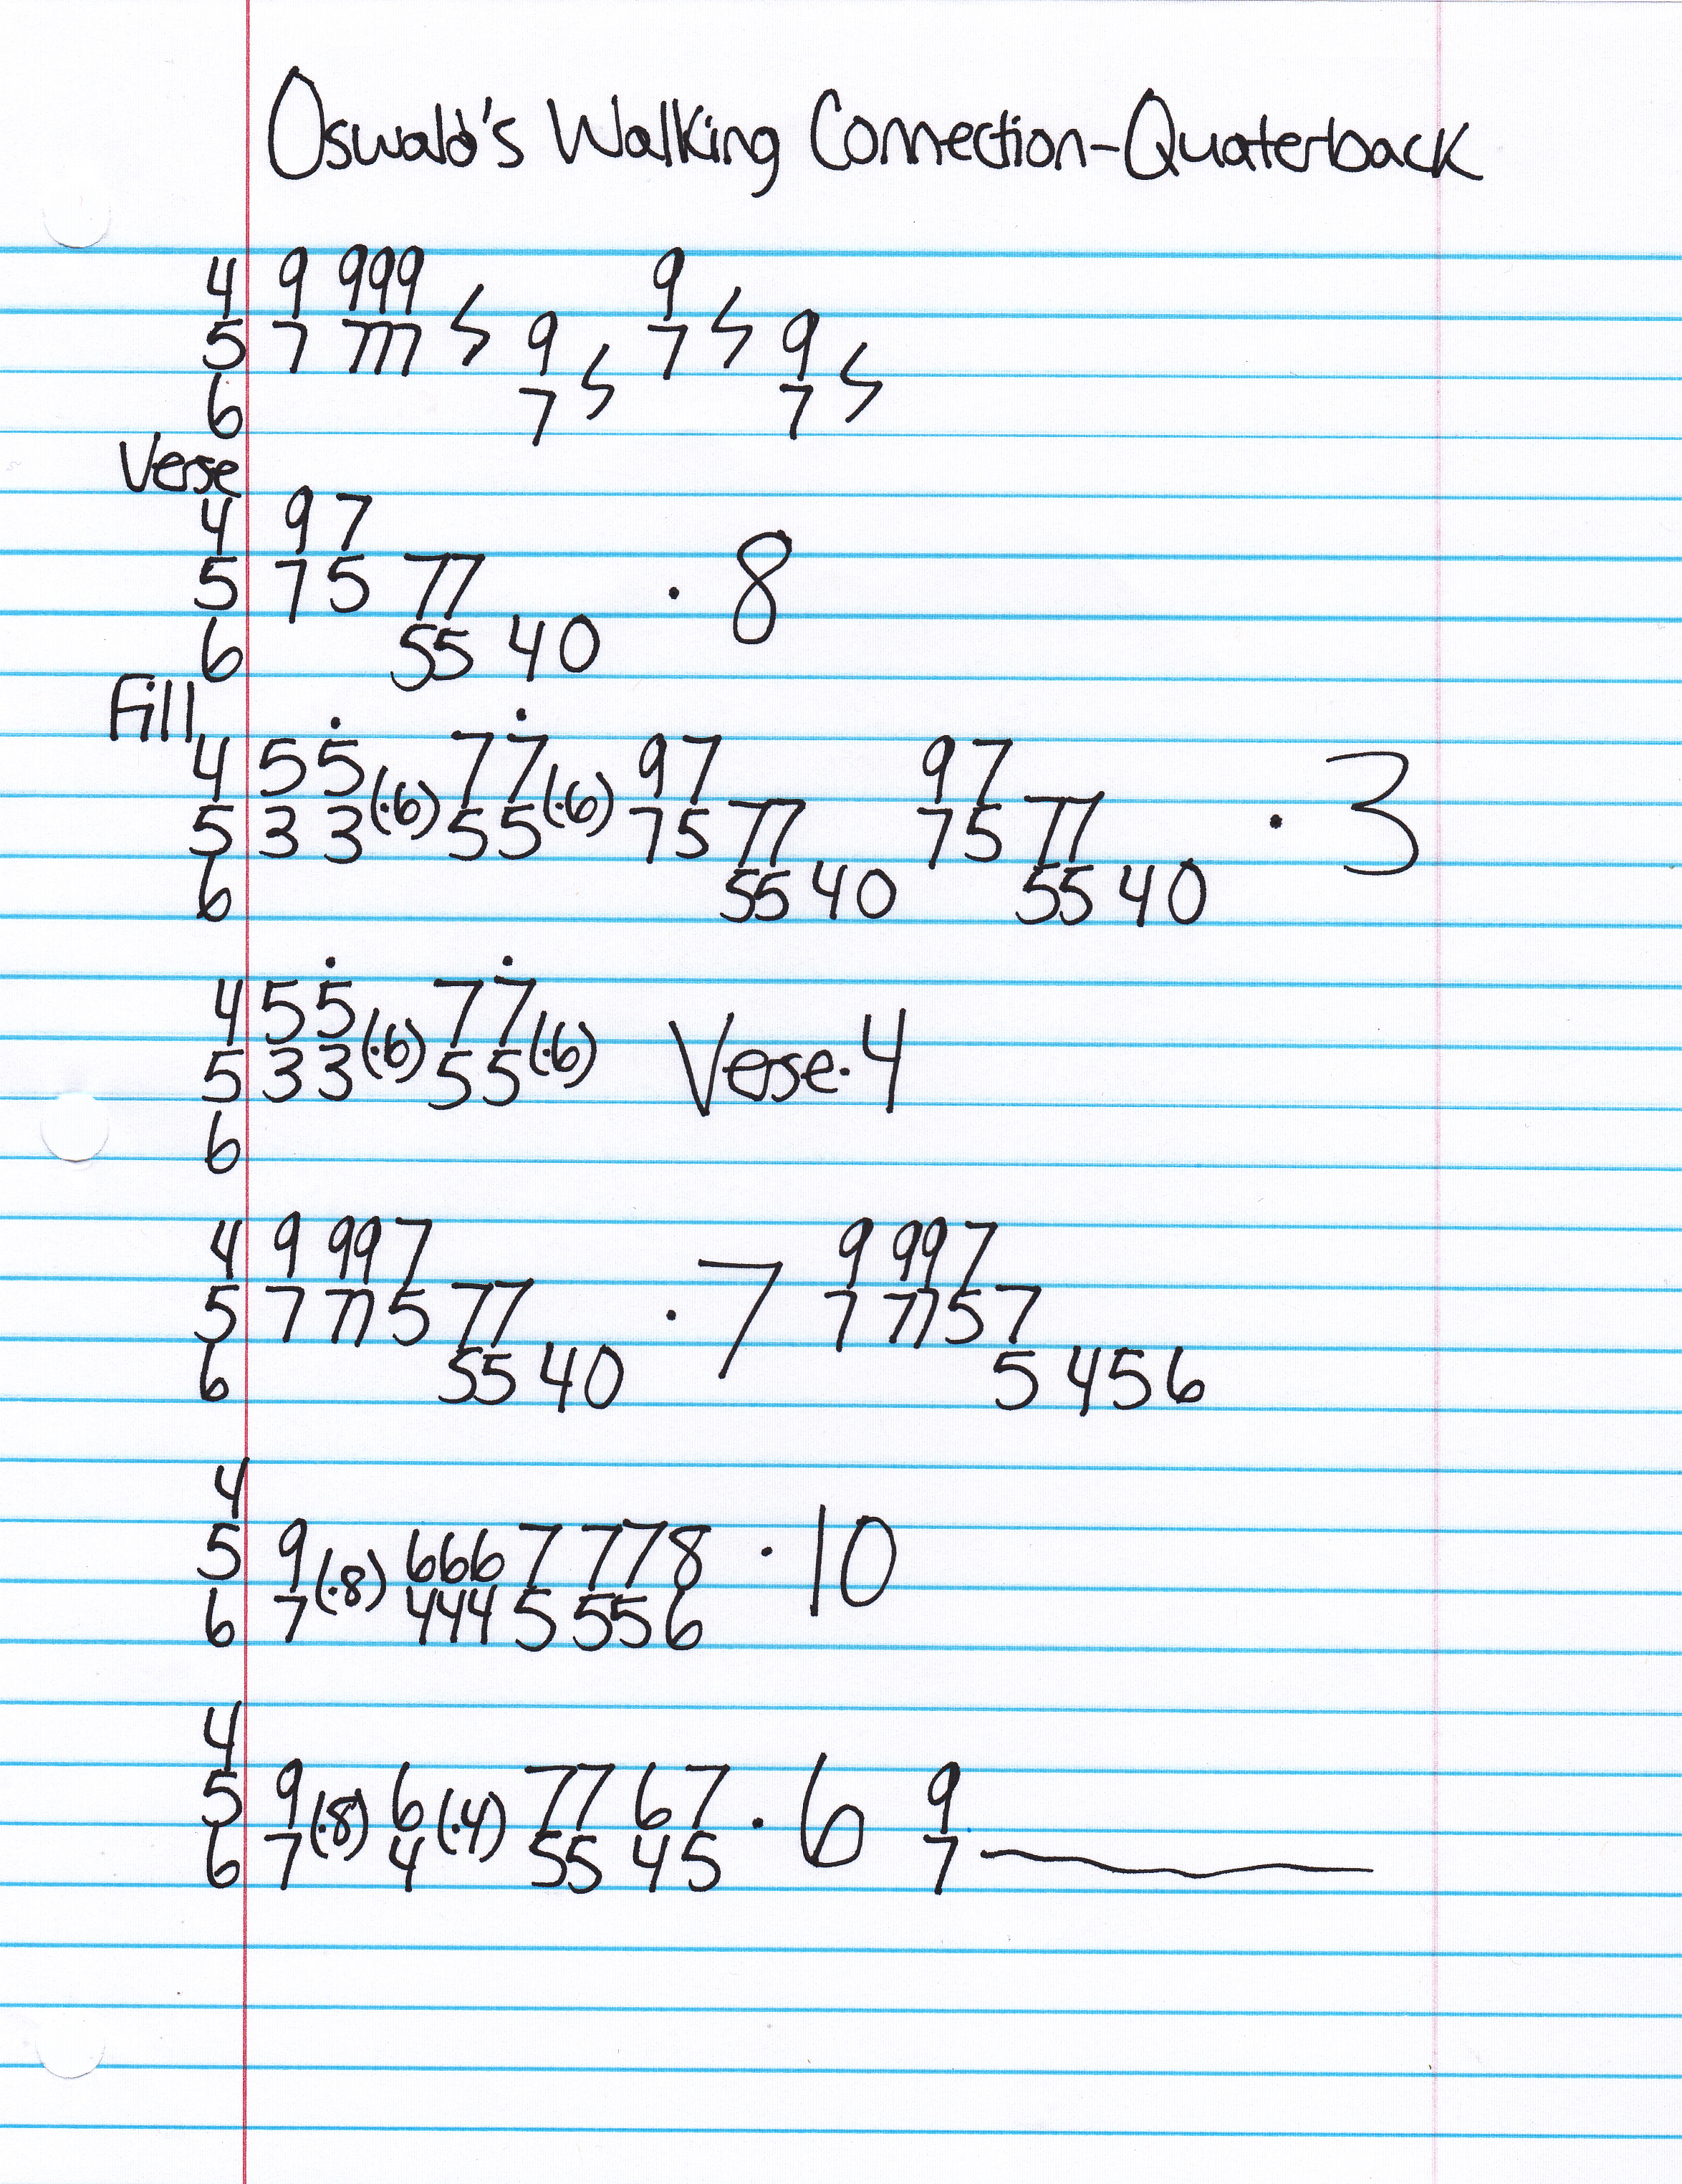 Oswald's Walking Connection-Quaterback
4 9 999 9
5 7 777 ϟ 9 7 ϟ 9
6 7 ϟ 7 ϟ
Verse
4 97
5 75 77 · 8
6 55 40
Fill
4 55̇ 77̇ 97 97
5 33(·6) 55(·6) 75 77 75 77 · 3
6 55 40 55 40
4 55̇ 77̇
5 33(·6) 55(·6) Verse·4
6
4 9 997 9 997
5 7 775 77 · 7 7 7757
6 55 40 5 456
4
5 9(·8) 6667 778 · 10
6 7 4445 556
4
5 9(·8) 6(·4) 77 67 · 6 9
6 7 4 55 45 7